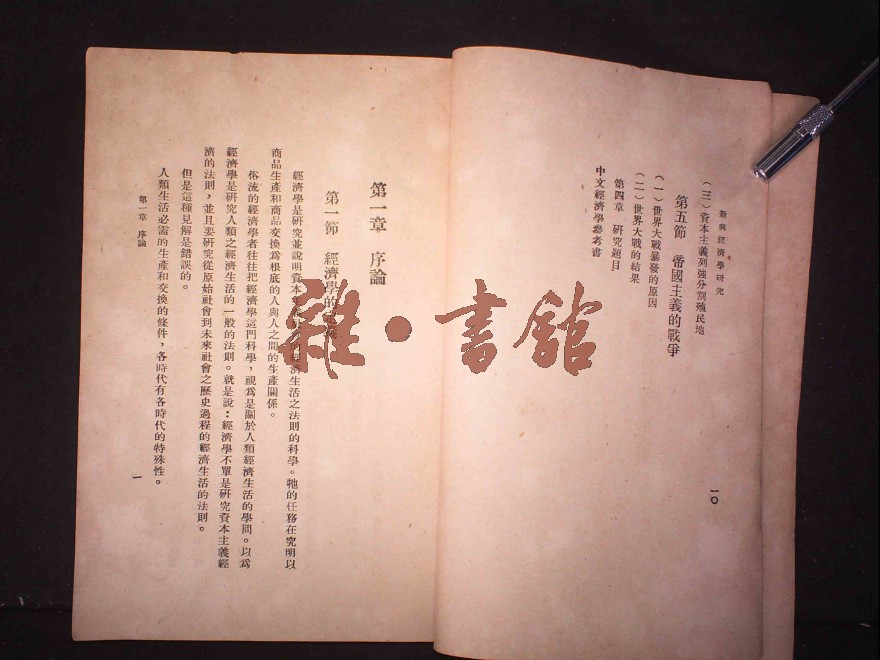 新興經濟學研究
(三)資本主義列強分割殖民地
第五節 帝國主義的戰爭
(一)世界大戰暴發的原因
(二)世界大戰的結果
第四章 研究題目
中文經濟學參考書
一〇
第一章 序論
第一節 經濟學的
經濟學是研究並說明資本主義 經濟生活之法則的科學。牠的任務在究明以
商品生產和商品交換爲根底的人與人之間的生產關係。
俗流的經濟學者往往把經濟學這門科學,視爲是關於人類經濟生活的學問。以爲
經濟學是研究人類之經濟生活的一般的法則。就是說:經濟學不單是研究資本主義經
濟的法則,並且要研究從原始社會到未來社會之歷史過程的經濟生活的法則。
但是這種見解是錯誤的。
人類生活必需的生產和交換的條件,各時代有各時代的特殊性。
第一章 序論
一
雜·書館